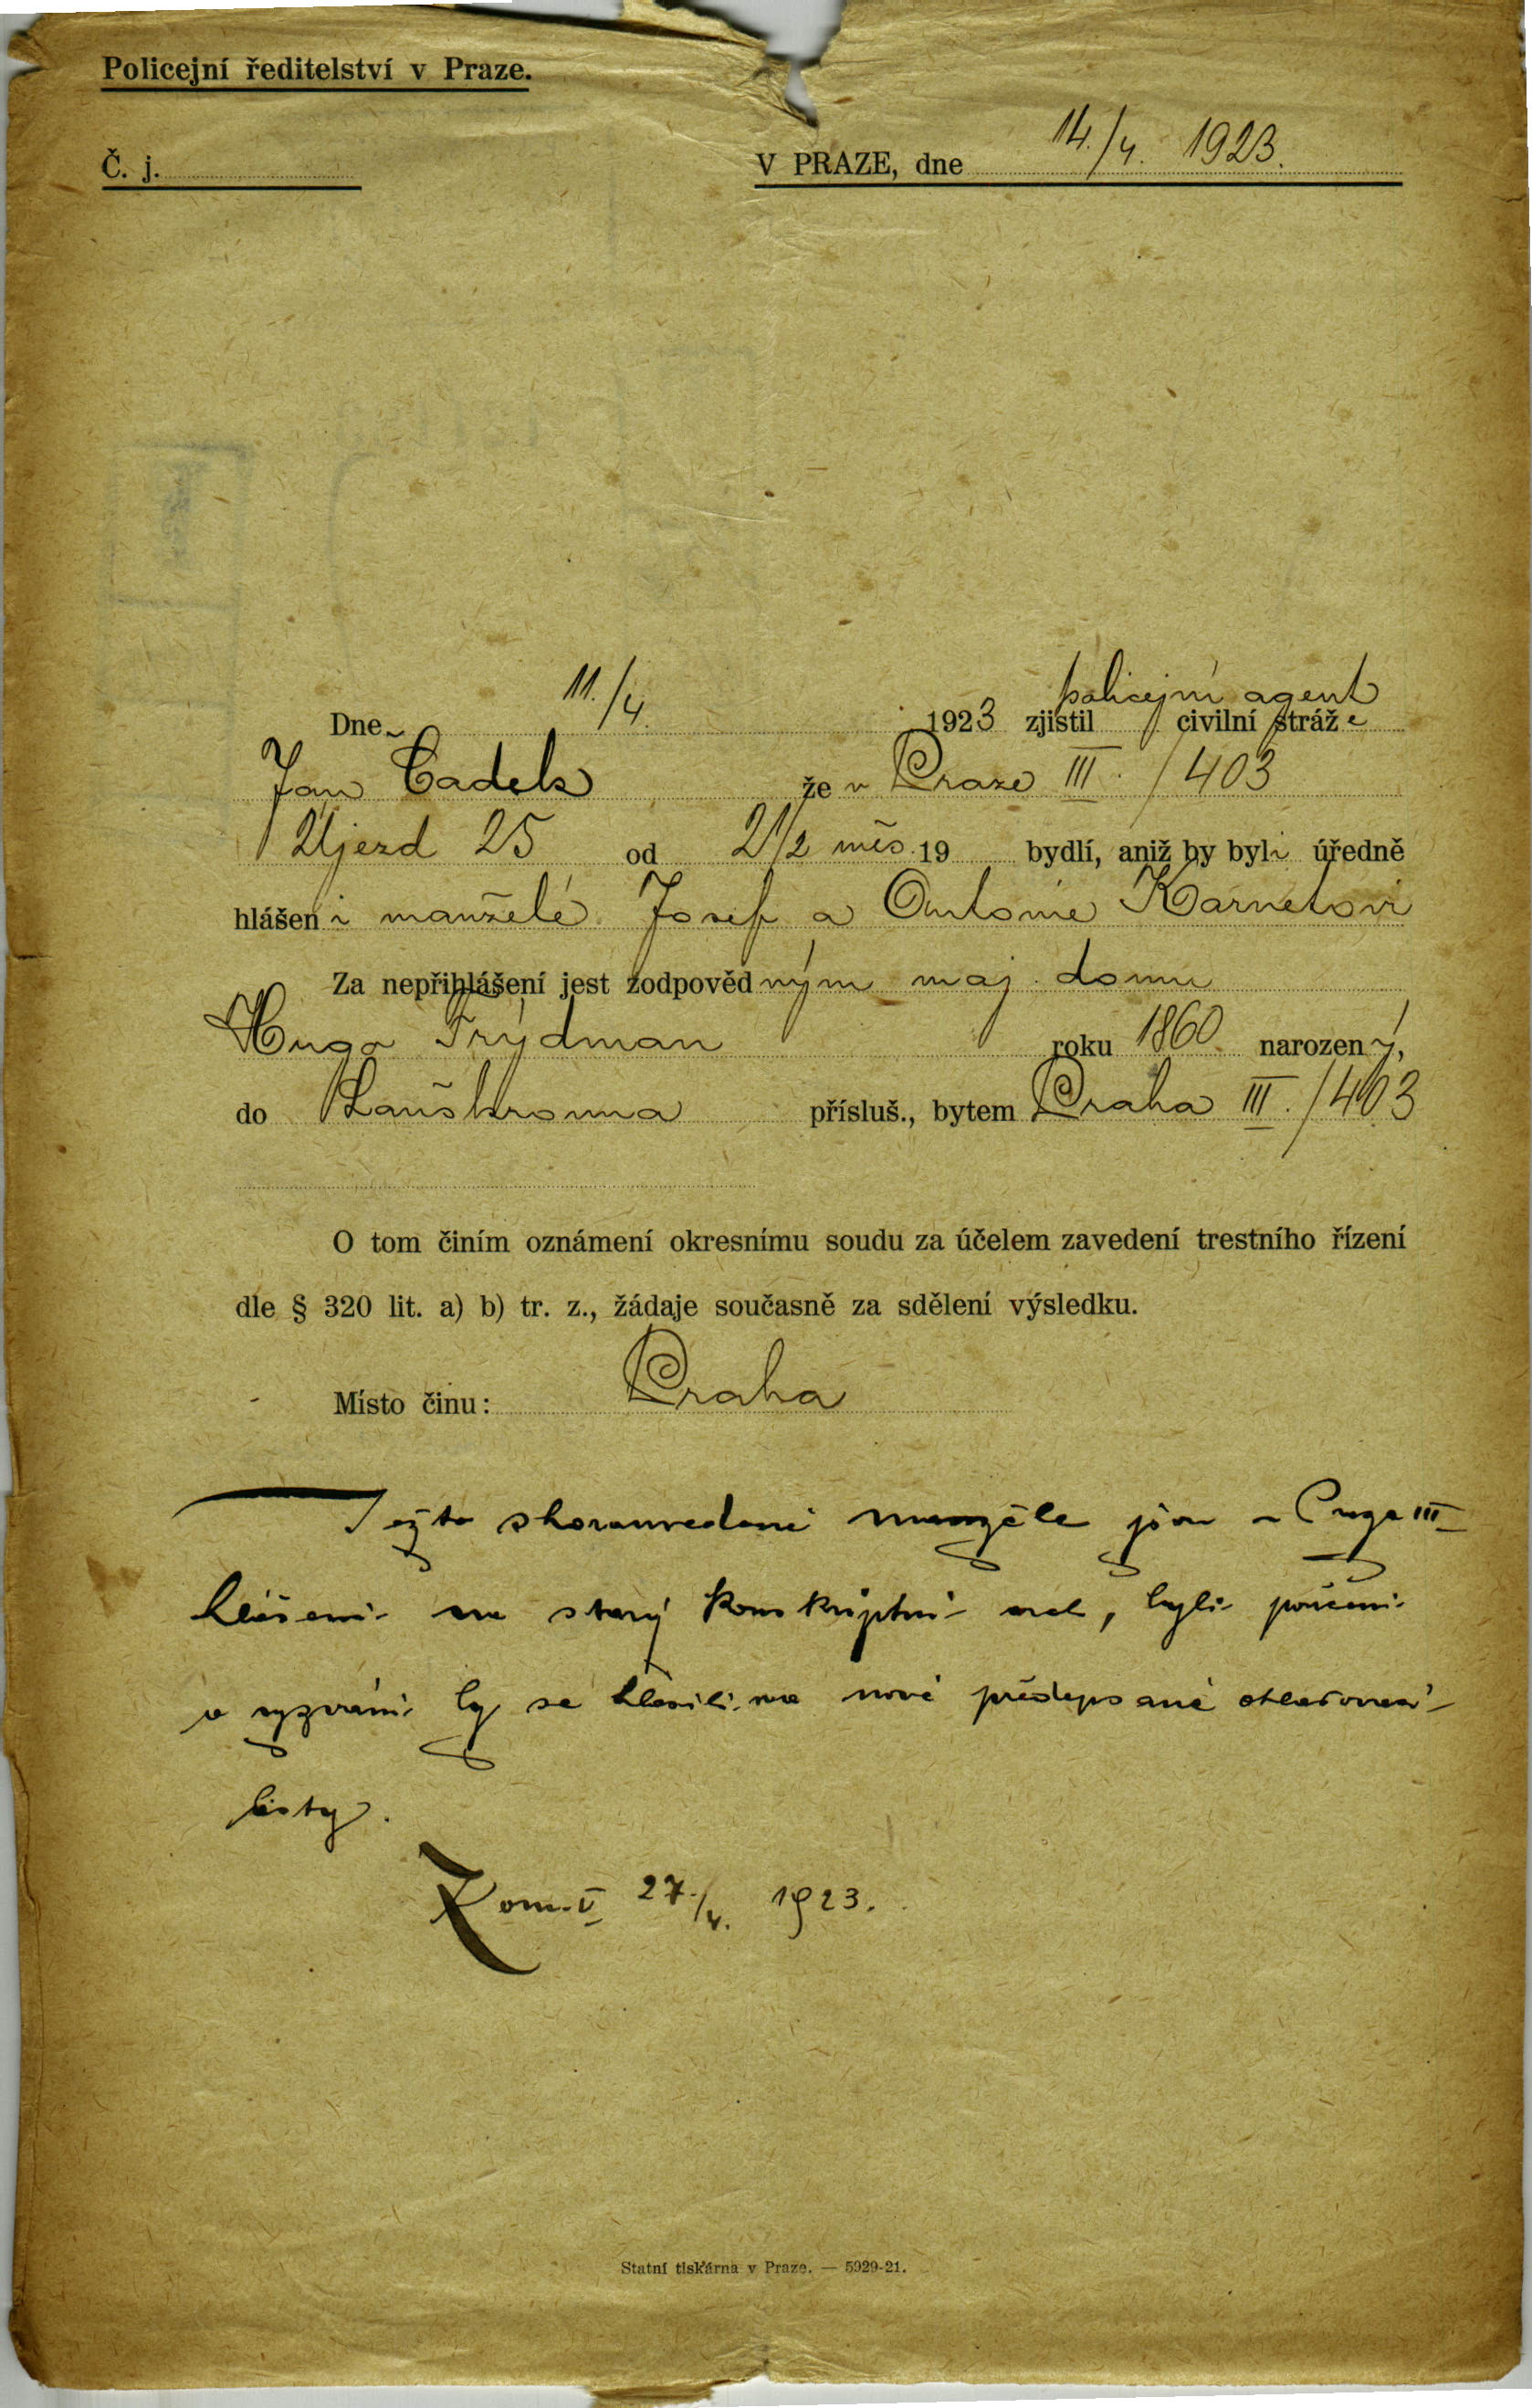 Policejní ředitelství v Praze.
Č. j.
V PRAZE, dne 14./4. 1923.
policejní agent
Dne 11./4. 1923 zjistil civilní stráže
Jan Čadek že v Praze III. / 403
Újezd 25 od 2 1/2 měs. 19 bydlí, aniž by byli úředně
hlášeni manželé Josef a Antonie Karnetovi
Za nepřihlášení jest zodpovědným maj. domu
Hugo Frýdman roku 1860 narozený,
do Lanškrouna přísluš., bytem Praha III. / 403
O tom činím oznámení okresnímu soudu za účelem zavedení trestního řízení
dle § 320 lit. a) b) tr. z., žádaje současně za sdělení výsledku.
Místo činu: Praha
shorauvedení manželé jsou v Praze III
hlášeni na starý konskripční arch, byli poučeni
a vyzváni by se hlásili na nové předepsané ohlašovací
listy.
Kom. V 27./4. 1923.
Statní tiskárna v Praze. — 5929-21.